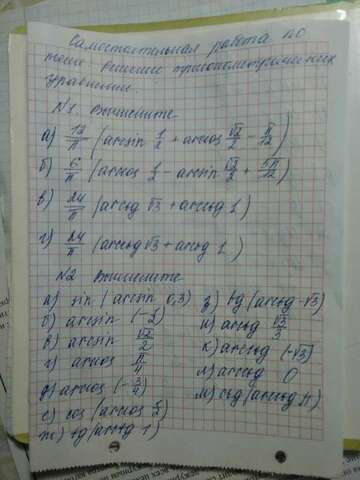 Самостоятельная работа по
теме решение тригонометрических
уравнений
N1. Вычислите
а) 12/π (arcsin 1/2 + arccos √2/2 - π/12)
б) 6/π (arccos 1/2 - arcsin √3/2 + 5π/12)
в) 24/π (arcctg √3 + arcctg 1)
г) 24/π (arcctg √3 + arctg 1)
N2 Вычислите
а) sin (arcsin 0,3)
б) arcsin (-2)
в) arcsin √2/2
г) arccos π/4
д) arccos (-3/4)
е) cos (arccos
ж) tg (arctg 1)
з) tg (arcctg -√3)
и) arcctg √3/3
к) arcctg (-√3)
л) arcctg 0
м) ctg (arcctg π)